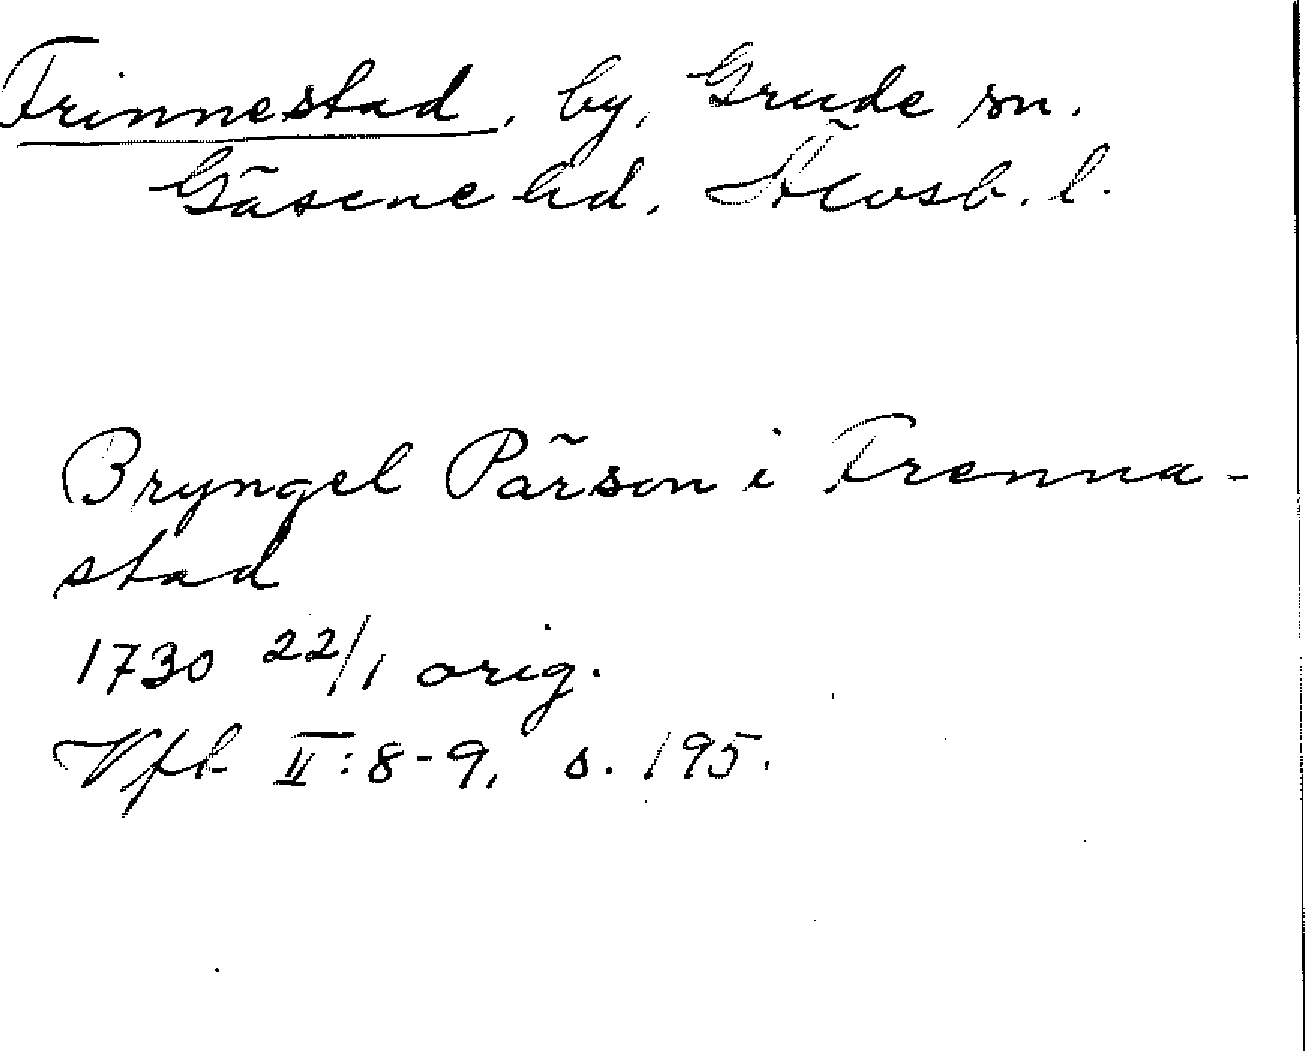 Trinnestad, by, Grude sn.
Gäsene hd, Älvsb. l.
Bryngel Pärson i Trenna-
stad
1730 22/1 orig.
Vfh II:8-9, s. 195.